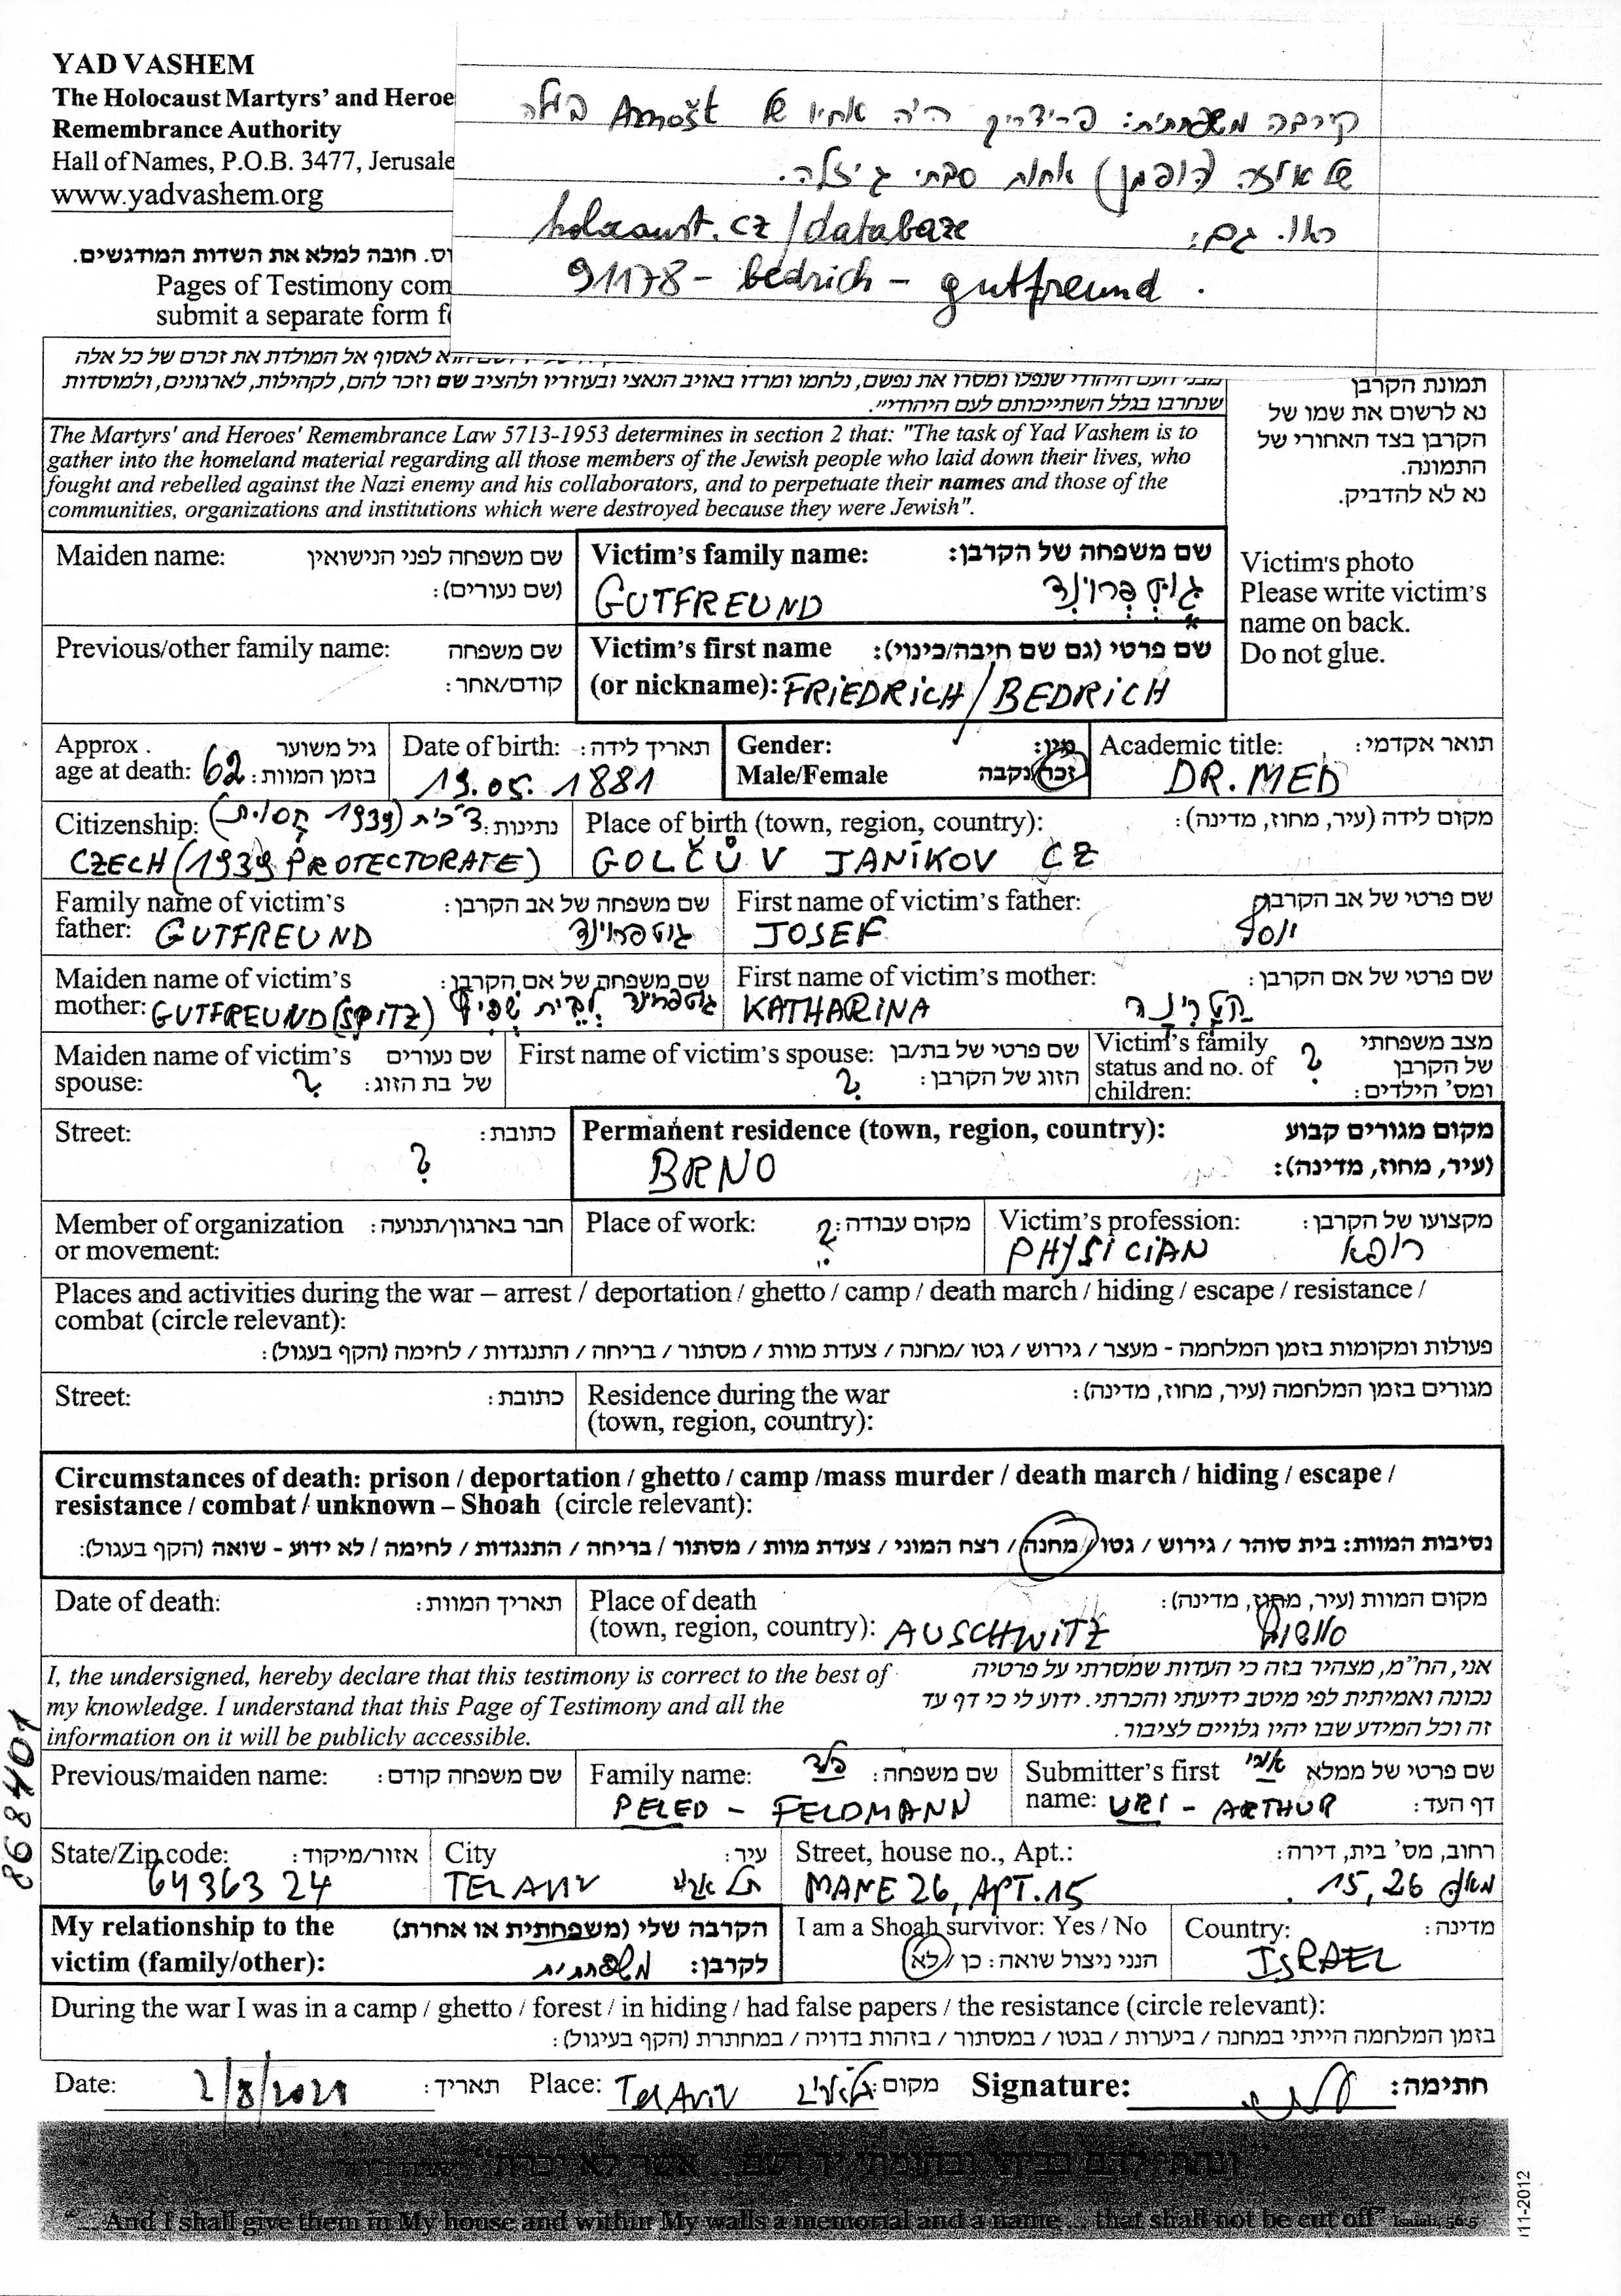 YAD VASHEM
The Holocaust Martyrs' and Heroe
Remembrance Authority
Hall of Names, P.O.B. 3477, Jerusale
www.yadvashem.org
קירבה משפחתית: פרידריך היה אחיו של Arnošt בעלה
של אלזה (הופמן) אחות סבתי גיזלה.
ראו גם: holocaust.cz/databaze
91178 - bedrich - gutfreund.
וס. חובה למלא את השדות המודגשים.
Pages of Testimony com
submit a separate form fo
א לאסוף אל המולדת את זכרם של כל אלה
מבני העם היהודי שנפלו ומסרו את נפשם, נלחמו ומרדו באויב הנאצי ובעוזריו ולהציב שם וזכר להם, לקהילות, לארגונים, ולמוסדות
שנחרבו בגלל השתייכותם לעם היהודי".
The Martyrs' and Heroes' Remembrance Law 5713-1953 determines in section 2 that: "The task of Yad Vashem is to
gather into the homeland material regarding all those members of the Jewish people who laid down their lives, who
fought and rebelled against the Nazi enemy and his collaborators, and to perpetuate their names and those of the
communities, organizations and institutions which were destroyed because they were Jewish".
תמונת הקרבן
נא לרשום את שמו של
הקרבן בצד האחורי של
התמונה.
נא לא להדביק.
Victim's photo
Please write victim's
name on back.
Do not glue.
Maiden name: שם משפחה לפני הנישואין
(שם נעורים):
Victim's family name: שם משפחה של הקרבן:
GUTFREUND גוטפרוינד
Previous/other family name: שם משפחה
קודם/אחר:
Victim's first name שם פרטי (גם שם חיבה/כינוי):
(or nickname): FRIEDRICH / BEDRICH
Approx. גיל משוער
age at death: 62 בזמן המוות:
Date of birth: תאריך לידה:
19.05.1881
Gender: מין:
Male/Female זכר/נקבה
Academic title: תואר אקדמי:
DR. MED
Citizenship: נתינות: צ'כית (1939 חסות)
CZECH (1939 PROTECTORATE)
Place of birth (town, region, country): מקום לידה (עיר, מחוז, מדינה):
GOLČŮV JANÍKOV CZ
Family name of victim's שם משפחה של אב הקרבן:
father: GUTFREUND גוטפרוינד
First name of victim's father: שם פרטי של אב הקרבן:
JOSEF יוסף
Maiden name of victim's שם משפחה של אם הקרבן:
mother: GUTFREUND (SPITZ) גוטפרוינד לבית שפיץ
First name of victim's mother: שם פרטי של אם הקרבן:
KATHARINA קטרינה
Maiden name of victim's שם נעורים
spouse: ? של בת הזוג:
First name of victim's spouse: שם פרטי של בת/בן
? הזוג של הקרבן:
Victim's family מצב משפחתי
status and no. of ? של הקרבן
children: ומס' הילדים:
Street: כתובת:
?
Permanent residence (town, region, country): מקום מגורים קבוע
BRNO (עיר, מחוז, מדינה):
Member of organization חבר בארגון/תנועה:
or movement:
Place of work: מקום עבודה: ?
Victim's profession: מקצועו של הקרבן:
PHYSICIAN רופא
Places and activities during the war – arrest / deportation / ghetto / camp / death march / hiding / escape / resistance /
combat (circle relevant):
פעולות ומקומות בזמן המלחמה - מעצר / גירוש / גטו /מחנה / צעדת מוות / מסתור / בריחה / התנגדות / לחימה (הקף בעגול):
Street: כתובת:
Residence during the war מגורים בזמן המלחמה (עיר, מחוז, מדינה):
(town, region, country):
Circumstances of death: prison / deportation / ghetto / camp /mass murder / death march / hiding / escape /
resistance / combat / unknown – Shoah (circle relevant):
נסיבות המוות: בית סוהר / גירוש / גטו / מחנה / רצח המוני / צעדת מוות / מסתור / בריחה / התנגדות / לחימה / לא ידוע - שואה (הקף בעגול):
Date of death: תאריך המוות:
Place of death מקום המוות (עיר, מחוז, מדינה):
(town, region, country): AUSCHWITZ
I, the undersigned, hereby declare that this testimony is correct to the best of
my knowledge. I understand that this Page of Testimony and all the
information on it will be publicly accessible.
אני, הח"מ, מצהיר בזה כי העדות שמסרתי על פרטיה
נכונה ואמיתית לפי מיטב ידיעתי והכרתי. ידוע לי כי דף עד
זה וכל המידע שבו יהיו גלויים לציבור.
Previous/maiden name: שם משפחה קודם:
Family name: שם משפחה: פלד
PELED - FELDMANN
Submitter's first שם פרטי של ממלא אורי
name: URI - ARTHUR דף העד:
State/Zip code: אזור/מיקוד:
6436324
City עיר:
TEL AVIV תל אביב
Street, house no., Apt.: רחוב, מס' בית, דירה:
MANE 26, APT. 15 מאנה 26, 15
My relationship to the הקרבה שלי (משפחתית או אחרת)
victim (family/other): לקרבן: משפחתית
I am a Shoah survivor: Yes / No
הנני ניצול שואה: כן / לא
Country: מדינה:
ISRAEL
During the war I was in a camp / ghetto / forest / in hiding / had false papers / the resistance (circle relevant):
בזמן המלחמה הייתי במחנה / ביערות / בגטו / במסתור / בזהות בדויה / במחתרת (הקף בעיגול):
Date: 2/8/2021 תאריך: Place: Tel Aviv מקום: תל אביב Signature: חתימה:
"ונתתי להם בביתי ובחומתי יד ושם... אשר לא יכרת"
"...And I shall give them in My house and within My walls a memorial and a name... that shall not be cut off" Isaiah, 56:5
868401
11-2012